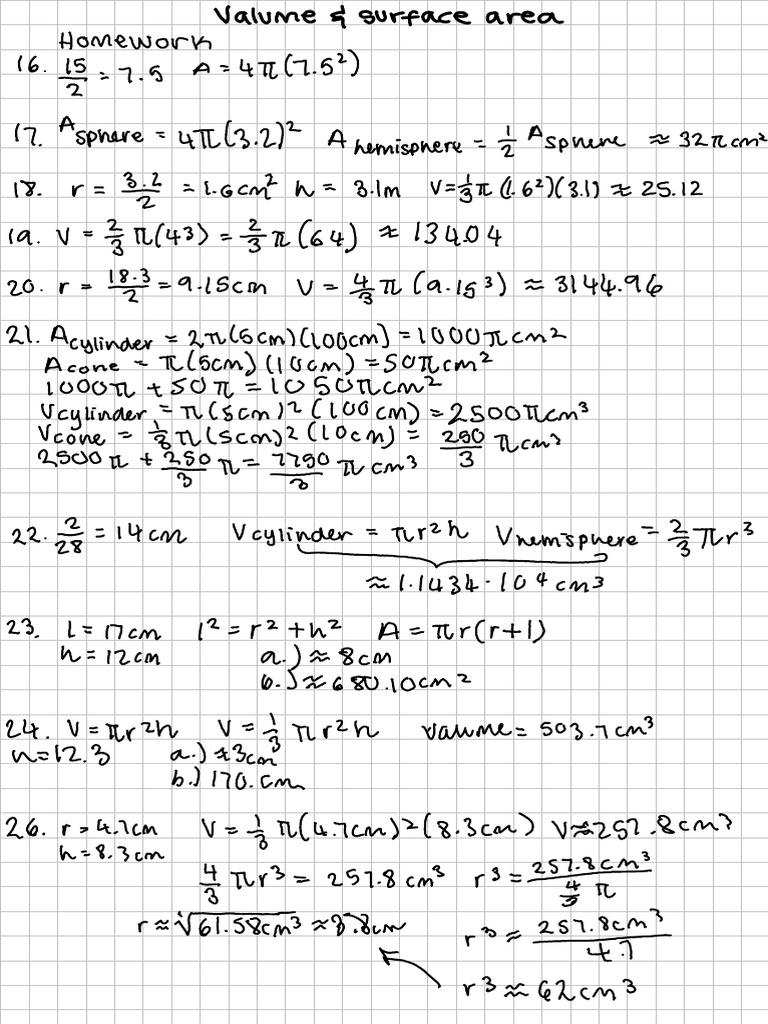 Valume & surface area
Homework
16. 15/2 = 7.5 A = 4π(7.5²)
17. A sphere = 4π(3.2)² A hemisphere = 1/2 A sphere ≈ 32πcm²
18. r = 3.2/2 = 1.6cm² h = 3.1m V=1/3π(1.6²)(3.1) ≈ 25.12
19. V = 2/3 π(43) = 2/3 π(64) ≈ 134.04
20. r = 18.3/2 = 9.15cm V = 4/3 π (9.15³) ≈ 3144.96
21. A cylinder = 2π(5cm)(100cm) = 1000πcm²
A cone = π(5cm)(10cm) = 50πcm²
1000π + 50π = 1050πcm²
V cylinder = π(5cm)2(100cm) = 2500πcm³
V cone = 1/3π(5cm)2(10cm) = 250/3 πcm³
2500π + 250/3 π = 7750/3 πcm³
22. 2/28 = 14cm V cylinder = πr²h V hemisphere = 2/3 πr³
≈ 1.1434·10⁴cm³
23. l = 17cm l² = r² + h² A = πr(r+l)
h = 12cm a.) ≈ 8cm
b.) ≈ 680.10cm²
24. V = πr²h V = 1/3 πr²h valume = 503.7cm³
h=12.3 a.) ≈3cm
b.) 170.cm
26. r = 4.7cm V = 1/3 π(4.7cm)²(8.3cm) V≈257.8cm³
h=8.3cm
4/3 πr³ = 257.8 cm³ r³ = 257.8cm³/4/3 π
r ≈ ∛61.58cm³ ≈ cm r³ ≈ 257.8cm³/4.1
r³ ≈ 62cm³